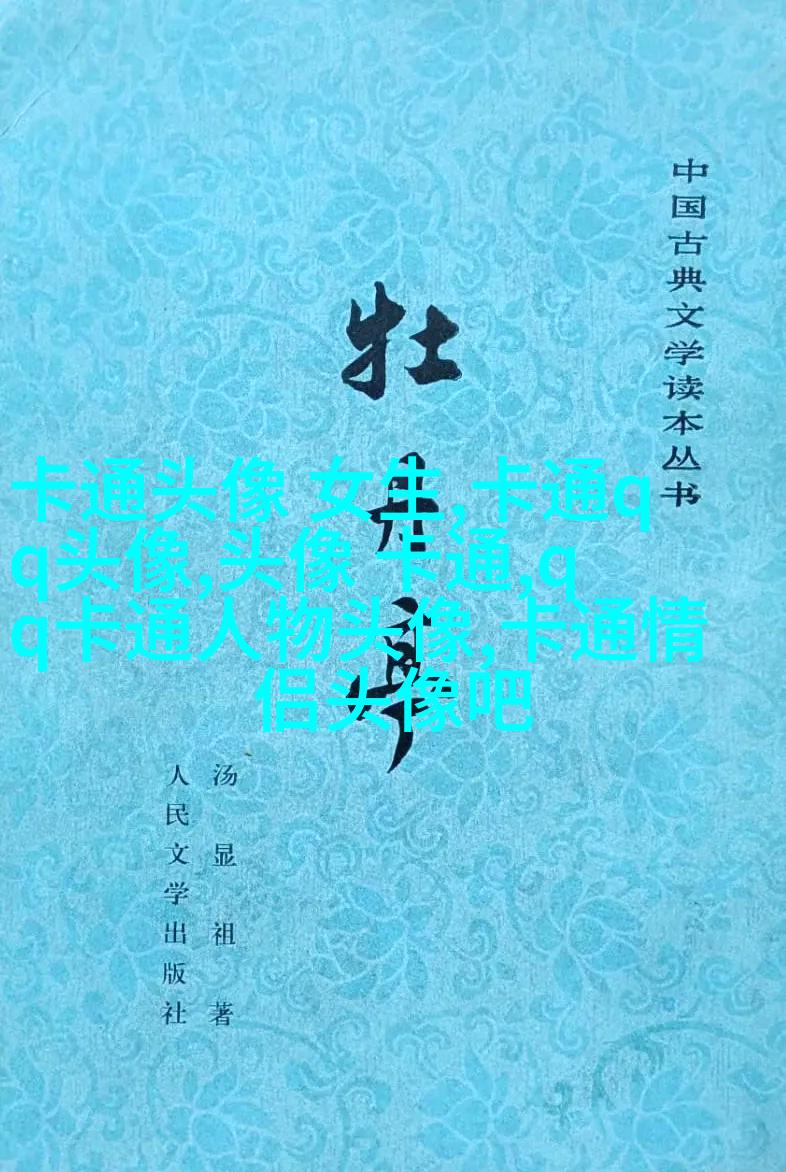 中国古典文学读本丛书
牡丹亭
卡通头像 女生,卡通q
q头像,头像 卡通,q
q卡通人物头像,卡通情
侣头像吧
汤显祖著
人民文学出版社